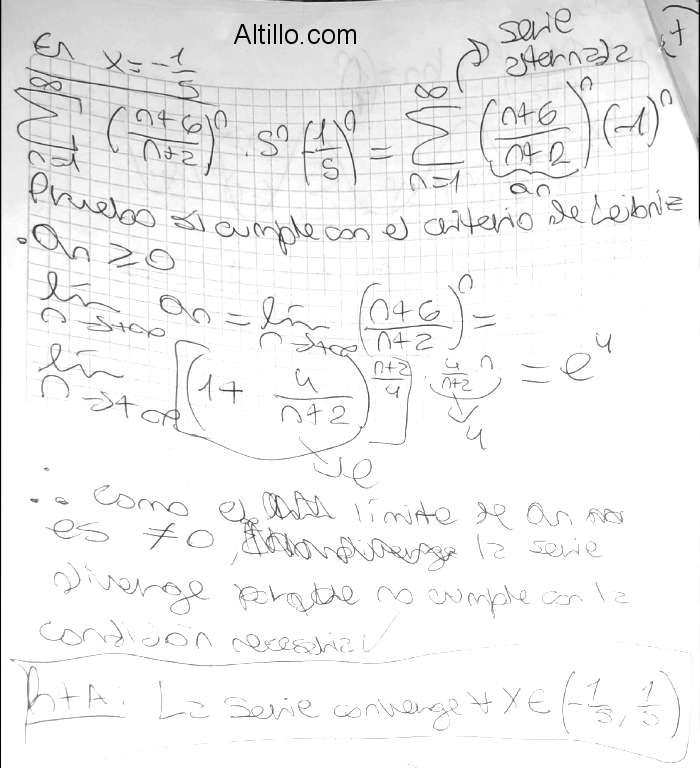 Altillo.com
En x = -1/5
serie alternada
∞ ∑ n=1 ((n+6)/(n+2))^n · 5^n (1/5)^n = ∞ ∑ n=1 ((n+6)/(n+2))^n (-1)^n
an
Pruebo si cumple con el criterio de Leibniz
. an ≥ 0
lím n→+∞ an = lím n→+∞ ((n+6)/(n+2))^n =
lím n→+∞ [(1 + 4/(n+2))^((n+2)/4)]^(4/(n+2) · n) = e^4
→ e
→ 4
∴ como el límite de an
es ≠ 0 la serie
diverge porque no cumple con la
condición necesaria
RTA: La serie converge ∀ x ∈ (-1/5, 1/5)